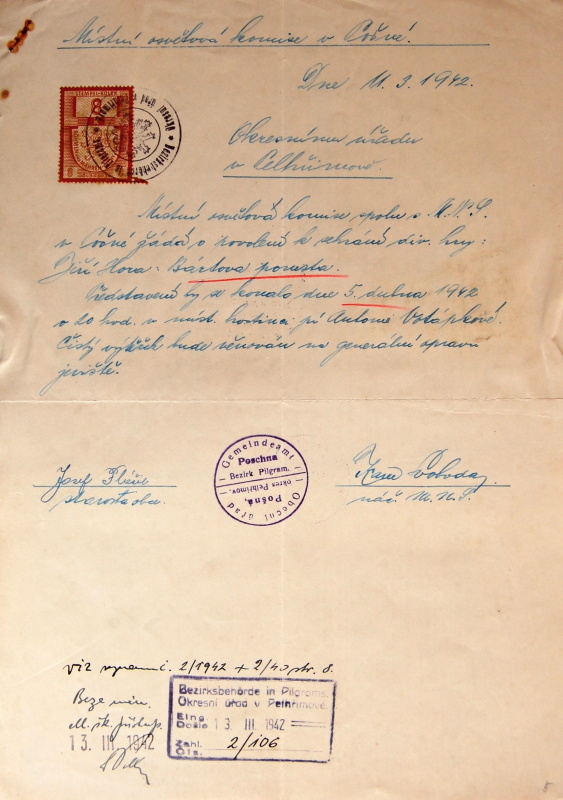 Místní osvětová komise v Pošné.
Dne 11.3.1942.
8
Okresnímu úřadu
v Pelhřimově.
Místní osvětová komise spolu s M.N.S.
v Pošné žádá o povolení k sehrání div. hry:
Jiří Hora - Bártova pomsta.
Představení by se konalo dne 5. dubna 1942
o 20 hod. v míst. hostinci pí Antonie Votápkové.
Čistý výtěžek bude věnován na generální opravu
jeviště.
Gemeindeamt
Poschna
Bezirk Pilgram.
okres Pelhřimov.
Pošná,
Obecní úřad
Josef
starosta obce.
Svoboda
náč. M.N.S.
viz 2/1942 + 2/40 str. 8.
Beze
13. III. 1942
Bezirksbehörde in Pilgrams.
Okresní úřad v Pelhřimově.
Eing.
Došlo 13. III. 1942
Zahl.
Čís. 2/106